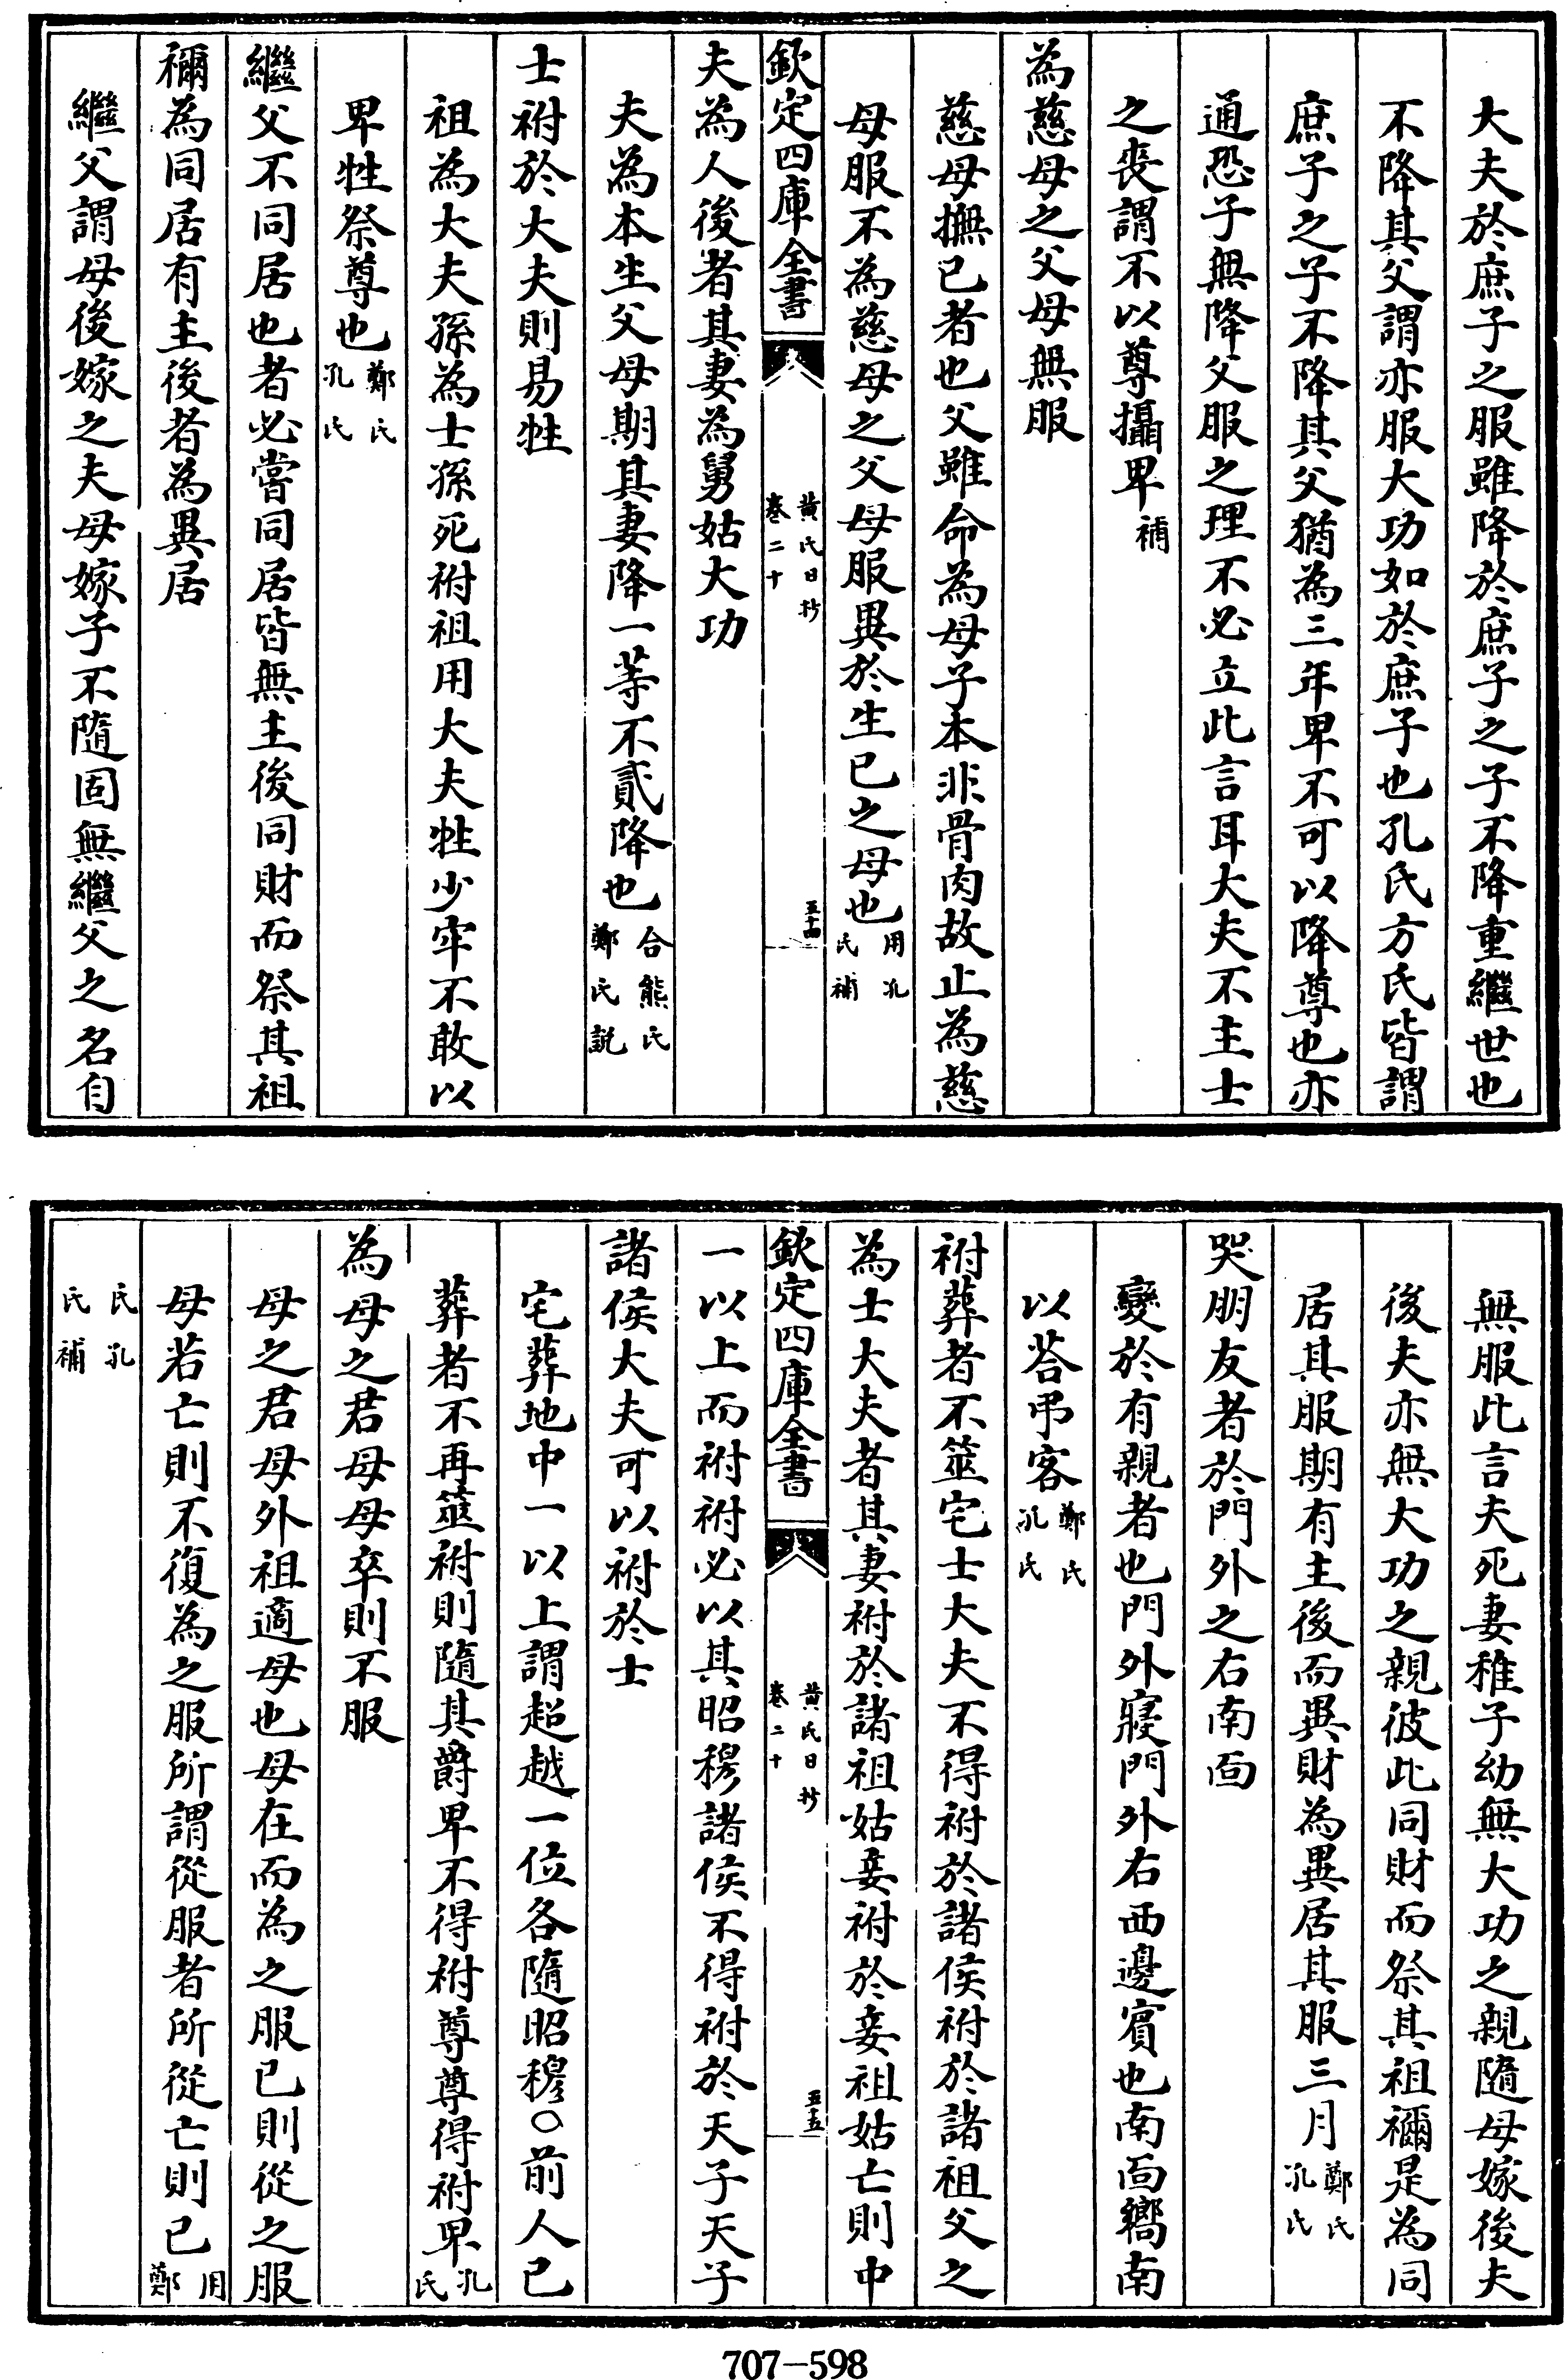 大夫於庶子之服雖降於庶子之子不降重繼世也
不降其父謂亦服大功如於庶子也孔氏方氏皆謂
庶子之子不降其父猶為三年卑不可以降尊也亦
通恐子無降父服之理不必立此言耳大夫不主士
之喪謂不以尊攝卑補
為慈母之父母無服
慈母撫已者也父雖命為母子本非骨肉故止為慈
母服不為慈母之父母服異於生已之母也用孔氏補
欽定四庫全書 黄氏日抄 卷二十 五十四
夫為人後者其妻為舅姑大功
夫為本生父母期其妻降一等不貳降也合熊氏鄭氏説
士祔於大夫則易牲
祖為大夫孫為士孫死祔祖用大夫牲少牢不敢以
卑牲祭尊也鄭氏孔氏
繼父不同居也者必嘗同居皆無主後同財而祭其祖
禰為同居有主後者為異居
繼父謂母後嫁之夫母嫁子不隨固無繼父之名自
無服此言夫死妻稚子幼無大功之親隨母嫁後夫
後夫亦無大功之親彼此同財而祭其祖禰是為同
居其服期有主後而異財為異居其服三月鄭氏孔氏
哭朋友者於門外之右南面
變於有親者也門外寢門外右西邊賓也南面嚮南
以荅弔客鄭氏孔氏
祔葬者不筮宅士大夫不得祔於諸侯祔於諸祖父之
為士大夫者其妻祔於諸祖姑妾祔於妾祖姑亡則中
欽定四庫全書 黄氏日抄 卷二十 五十五
一以上而祔祔必以其昭穆諸侯不得祔於天子天子
諸侯大夫可以祔於士
宅葬地中一以上謂超越一位各隨昭穆○前人已
葬者不再筮祔則隨其爵卑不得祔尊尊得祔卑孔氏
為母之君母母卒則不服
母之君母外祖適母也母在而為之服已則從之服
母若亡則不復為之服所謂從服者所從亡則已用鄭
氏孔氏補
707-598